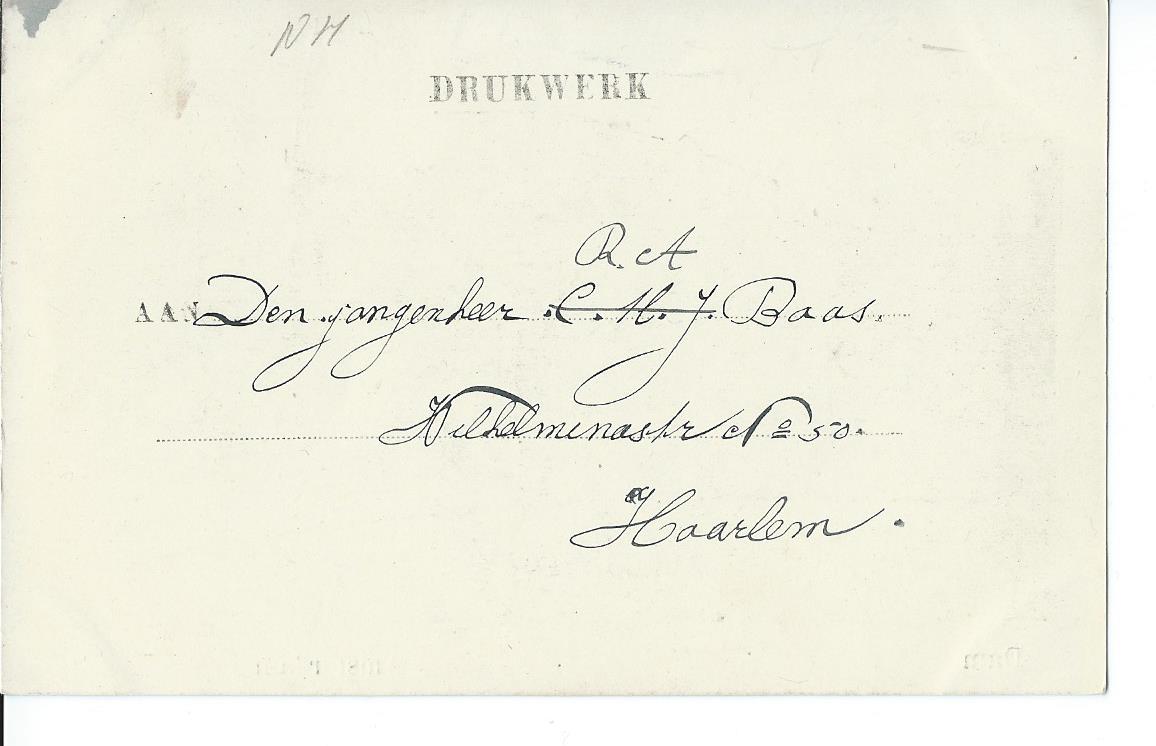 NH
DRUKWERK
R. A
AAN Den jongenheer C. H. J. Baas.
Wilhelminastr No 50.
Haarlem.